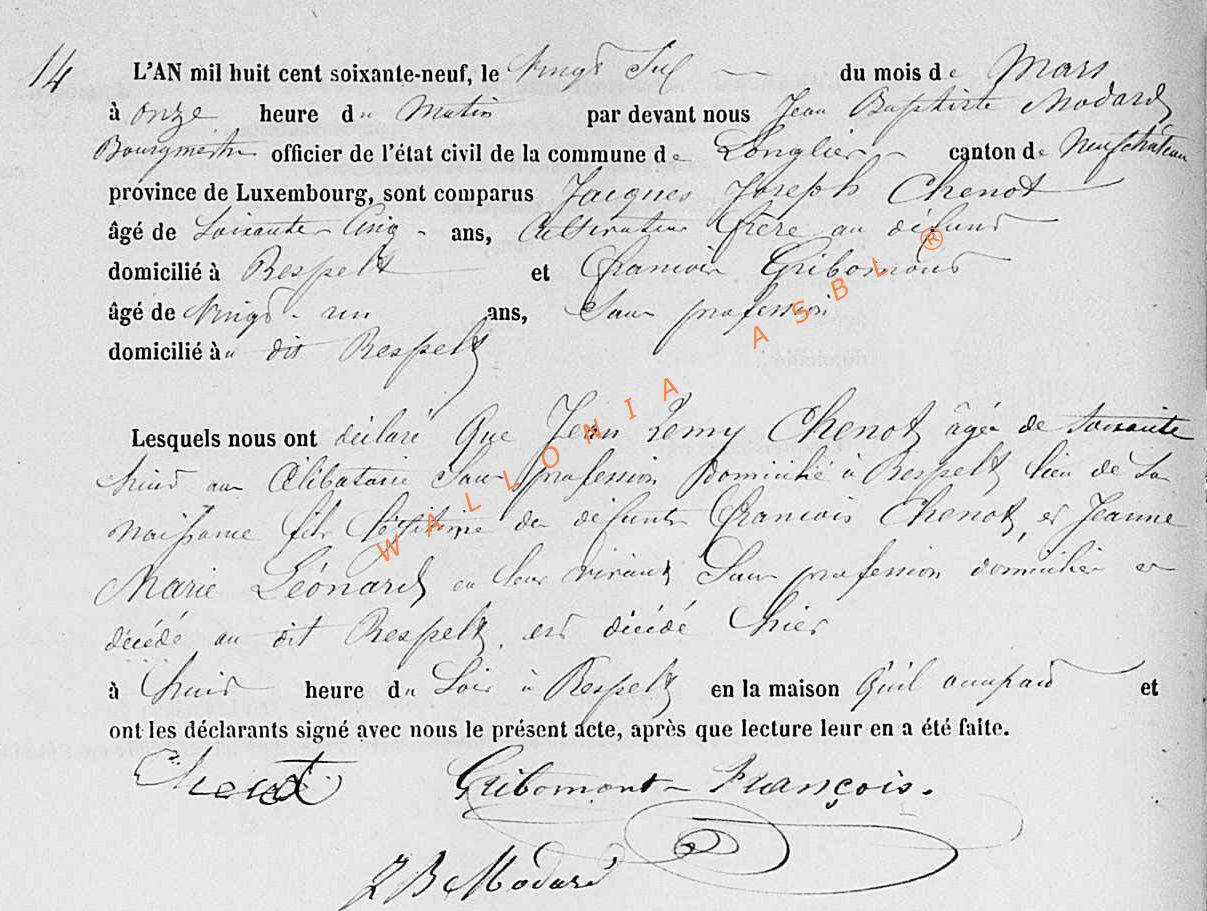 14
L'AN mil huit cent soixante-neuf, le Vingt Six du mois de Mars
à onze heure du Matin par devant nous Jean Baptiste Modard
Bourgmestre officier de l'état civil de la commune de Longlier canton de Neufchâteau
province de Luxembourg, sont comparus Jacques Joseph Chenot
âgé de Soixante Cinq ans, Cultivateur frère au défunt
domicilié à Respelt et Francois Gribomont
âgé de Vingt-un ans, Sans profession
domicilié au dit Respelt
Lesquels nous ont déclaré Que Jean Remy Chenot âgé de soixante
huit ans Célibataire Sans profession domicilié à Respelt lieu de Sa
naissance fils légitime des défunts Francois Chenot, et Jeanne
Marie Léonard en leur vivant Sans profession domicilier et
décédé au dit Respelt, est décédé hier
à huit heure du Soir à Respelt en la maison Qu'il occupait et
ont les déclarants signé avec nous le présent acte, après que lecture leur en a été faite.
Chenot Gribomont François.
J B Modard
WALLONIA ASBL ®